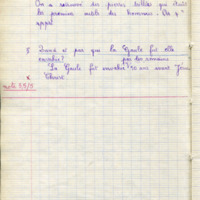 On a retrouvé des pierres taillées qui étaient
les premiers outils des hommes. On l'
appel
Quand et par qui la Gaule fut elle
envahie? par les romains
La Gaule fut envahie 50 ans avant Jésus
Christ
note